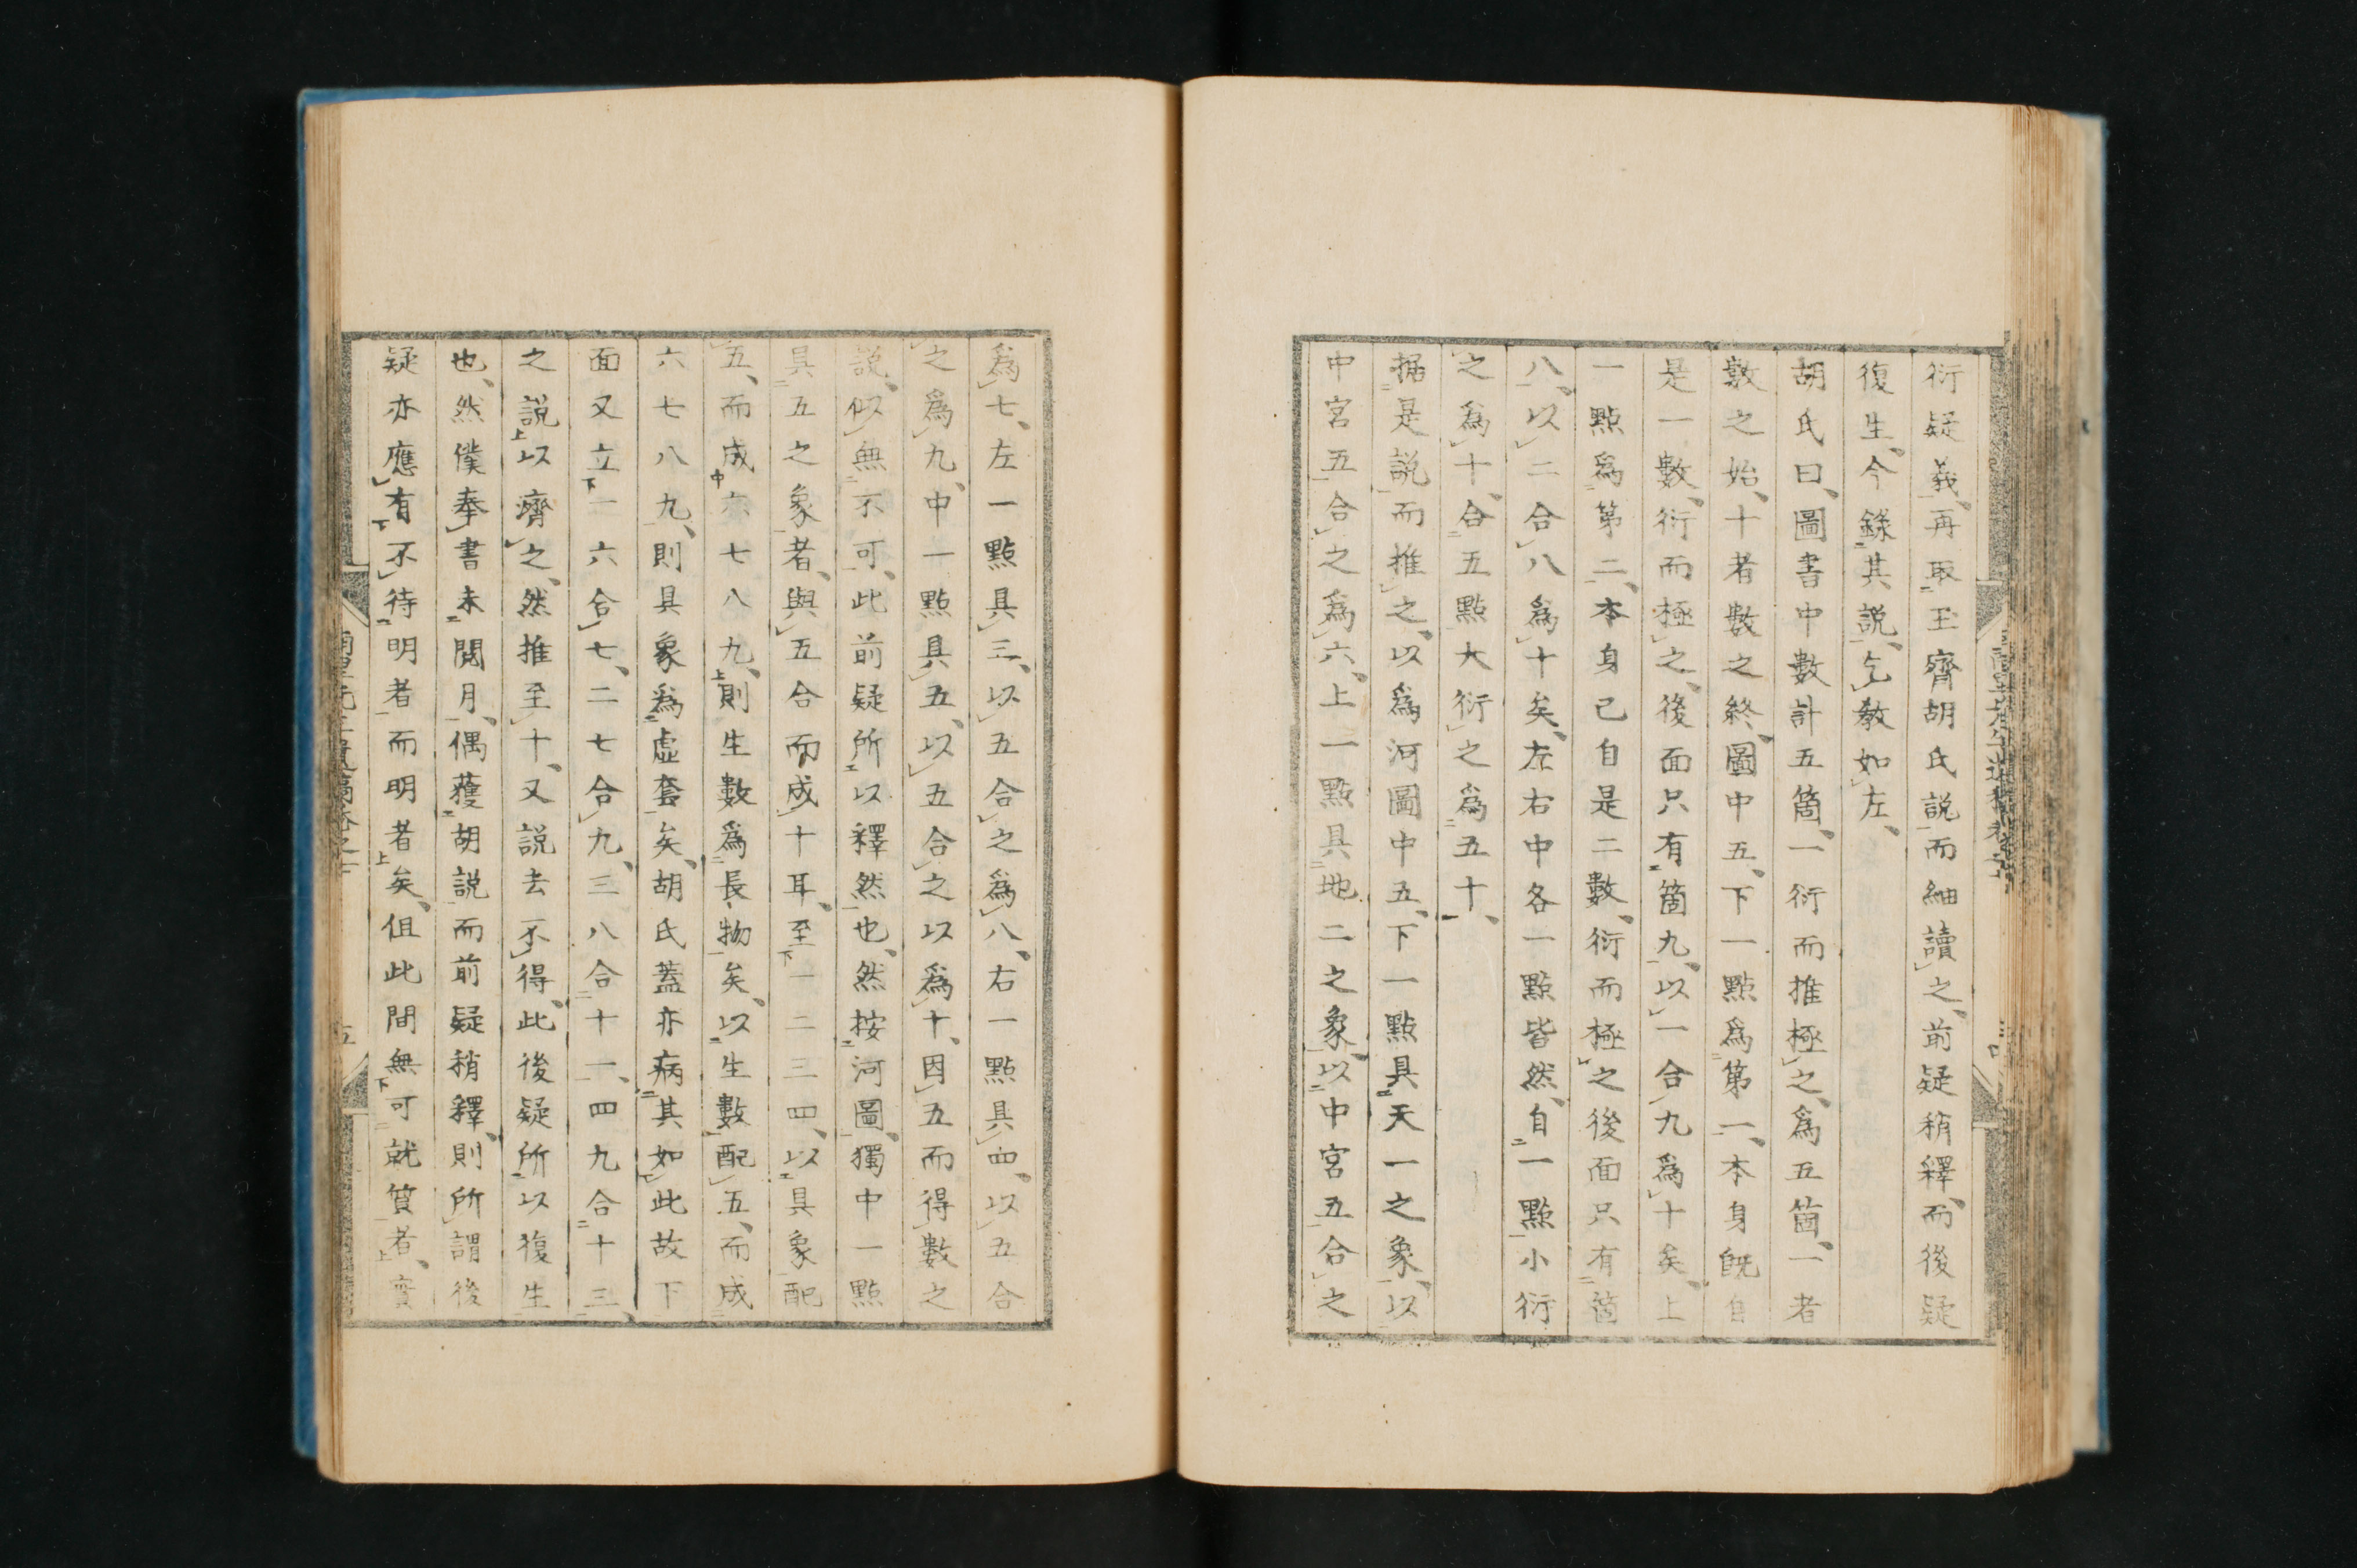 衍疑義、再取玉齊胡氏說而紬讀之、前疑稍釋、而後疑
復生、今錄其説、乞教如左、
胡氏曰、圖書中數計五箇、一衍而推極之、爲五箇、一者
數之始、十者數之終、圖中五、下一點爲第一、本身既自
是一數、衍而極之、後面只有箇九、以一合九爲十矣、上
一點爲第二、本身已自是二數、衍而極之後面只有箇
八、以二合八爲十矣、左右中各一點皆然、自一點小衍
之爲十、合五點大衍之爲五十、
据是説而推之、以爲河圖中五、下一點具天一之象、以
中宮五合之爲六、上一點具地二之象、以中宮五合之
爲七、左一點具三、以五合之爲八、右一點具四、以五合
之爲九、中一點具五、以五合之以爲十、因五而得數之
説、似無不可、此前疑所以釋然也、然按河圖、獨中一點
具五之象者、與五合而成十耳、至一二三四、以具象配
五、而成六七八九、則生數爲長物矣、以生數配五、而成
六七八九、則具象爲虛套矣、胡氏蓋亦病其如此故下
面又立一六合七、二七合九、三八合十一、四九合十三、
之説以濟之、然推至十、又説去不得、此後疑所以復生
也、然僕奉書未閲月、偶獲胡説而前疑稍釋、則所謂後
疑亦應有不待明者而明者矣、但此間無可就質者、實